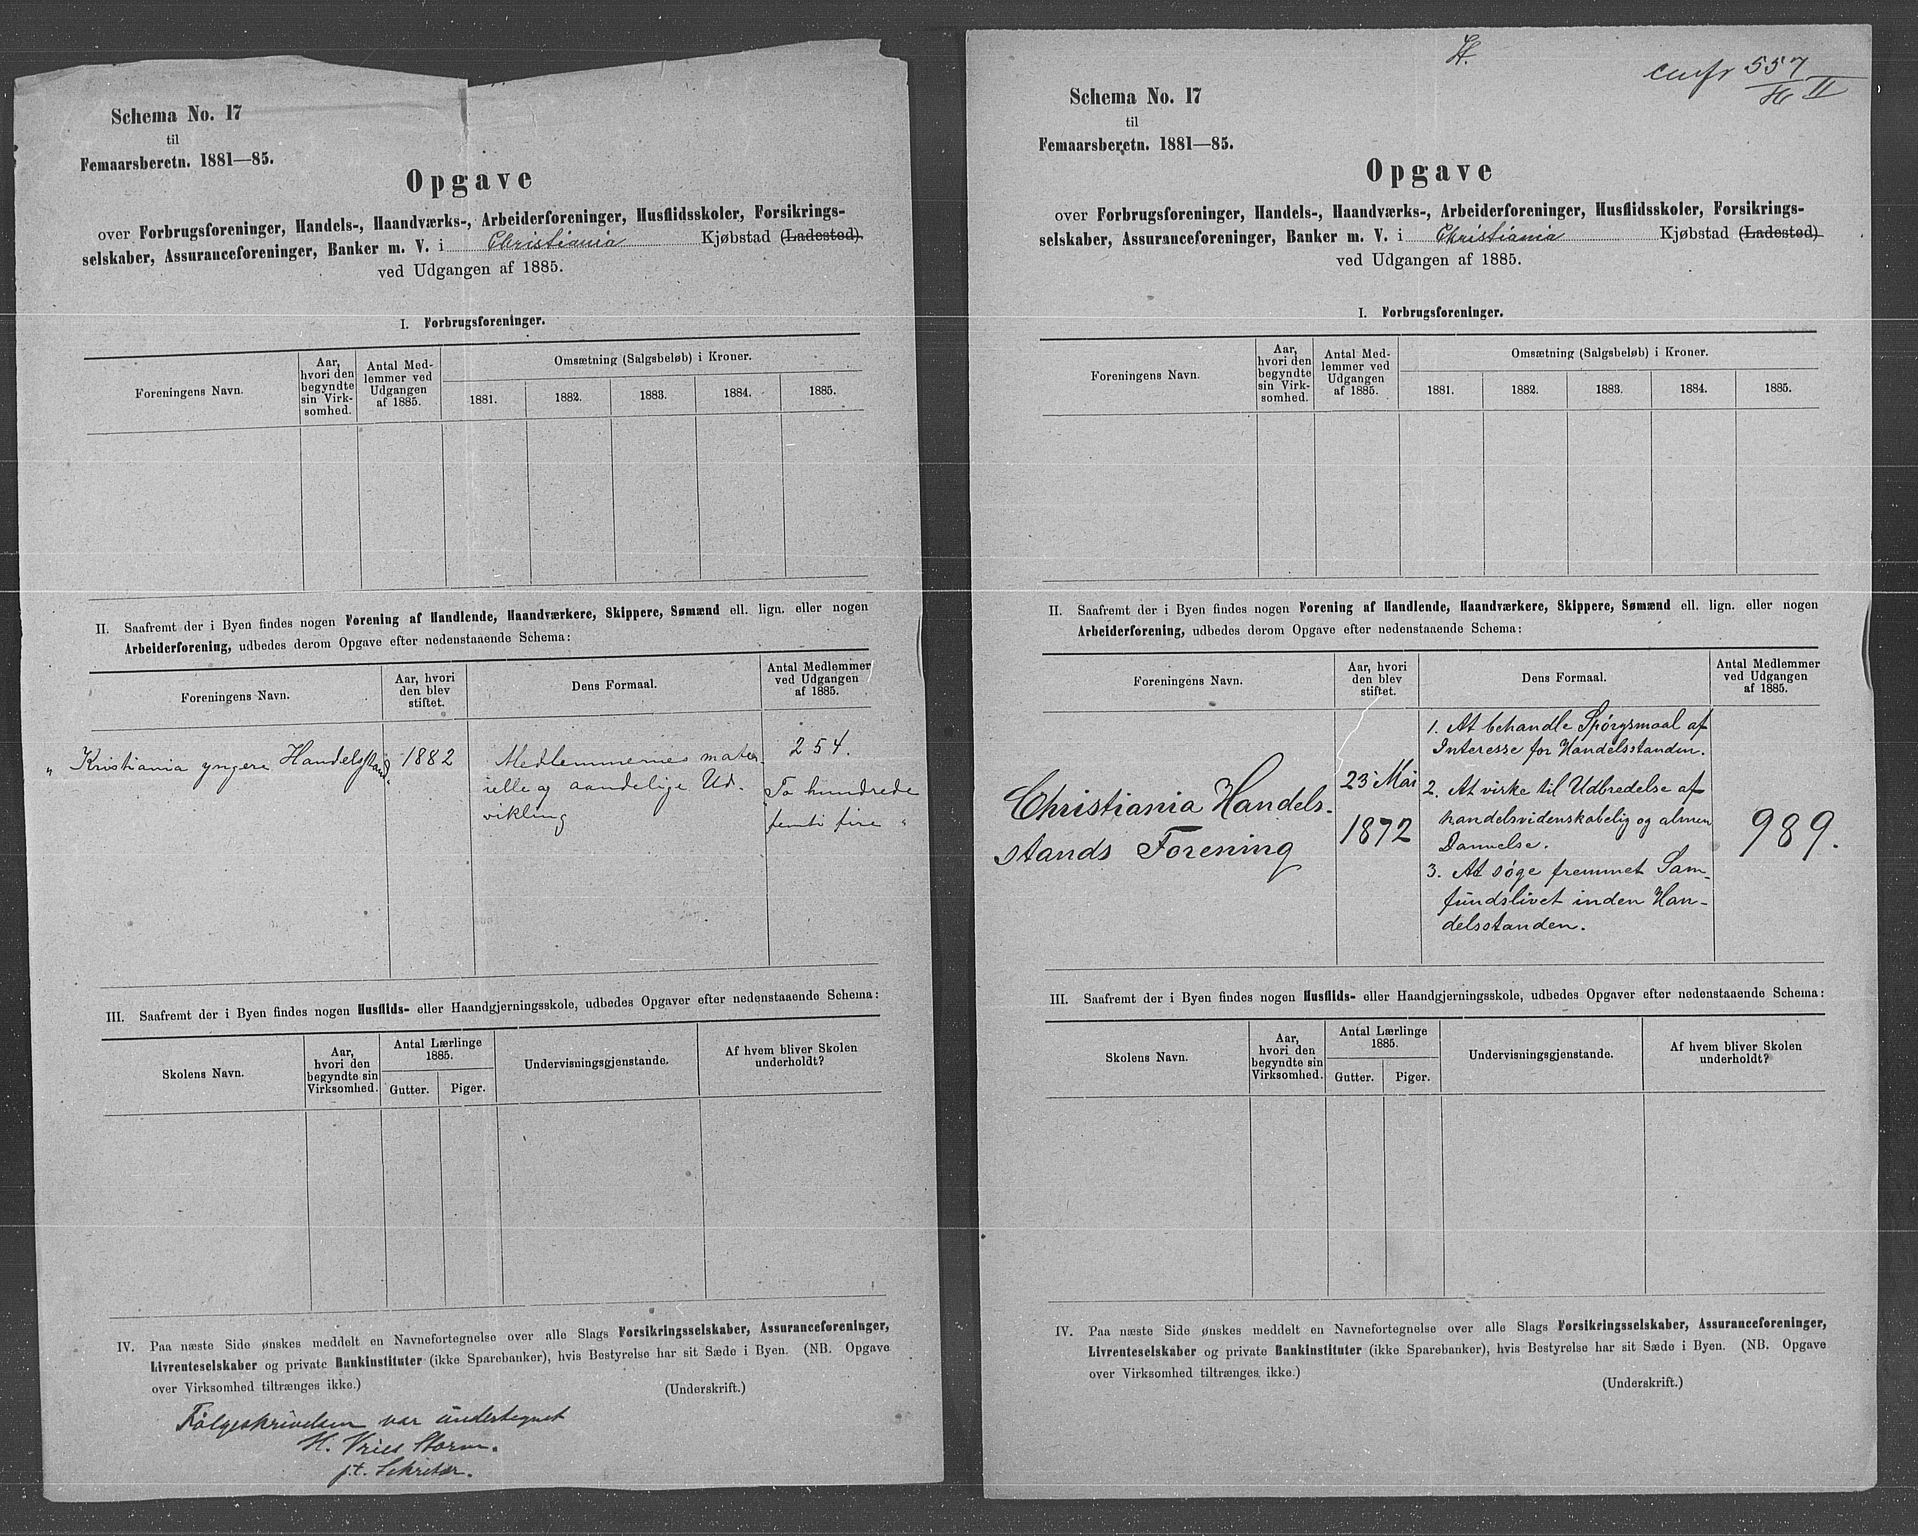 Schema No. 17
til
Femaarsberetn. 1881—85.
Opgave
over Forbrugsforeninger, Handels-, Haandværks-, Arbeiderforeninger, Husflidsskoler, Forsikrings-
selskaber, Assuranceforeninger, Banker m. V. i Christiania Kjøbstad (Ladested).
ved Udgangen af 1885.
I. Forbrugsforeninger.
Foreningens Navn.
Aar,
hvori den
begyndte
sin Virk-
somhed.
Antal Med-
lemmer ved
Udgangen
af 1885.
Omsætning (Salgsbeløb) i Kroner.
1881. 1882. 1883. 1884. 1885.
II. Saafremt der i Byen findes nogen Forening af Handlende, Haandværkere, Skippere, Sømænd ell. lign. eller nogen
Arbeiderforening, udbedes derom Opgave efter nedenstaaende Schema:
Foreningens Navn.
Aar, hvori
den blev
stiftet.
Dens Formaal.
Antal Medlemmer
ved Udgangen
af 1885.
"Kristiania yngre Handelsstand"
1882
Medlemmernes mate-
rielle og aandelige Ud-
vikling
254.
To hundrede
femti fire "
III. Saafremt der i Byen findes nogen Husflids- eller Haandgjerningsskole, udbedes Opgaver efter nedenstaaende Schema:
Skolens Navn.
Aar,
hvori den
begyndte sin
Virksomhed.
Antal Lærlinge
1885.
Gutter. Piger.
Undervisningsgjenstande.
Af hvem bliver Skolen
underholdt?
IV. Paa næste Side ønskes meddelt en Navnefortegnelse over alle Slags Forsikringsselskaber, Assuranceforeninger,
Livrenteselskaber og private Bankinstituter (ikke Sparebanker), hvis Bestyrelse har sit Sæde i Byen. (NB. Opgave
over Virksomhed tiltrænges ikke.)
(Underskrift.)
Følgeskrivelsen var undertegnet
H. Vries Storm.
p.t. Sekretær.
H.
cnfr 557
II
Schema No. 17
til
Femaarsberetn. 1881—85.
Opgave
over Forbrugsforeninger, Handels-, Haandværks-, Arbeiderforeninger, Husflidsskoler, Forsikrings-
selskaber, Assuranceforeninger, Banker m. V. i Christiania Kjøbstad (Ladested)
ved Udgangen af 1885.
I. Forbrugsforeninger.
Foreningens Navn.
Aar,
hvori den
begyndte
sin Virk-
somhed.
Antal Med-
lemmer ved
Udgangen
af 1885.
Omsætning (Salgsbeløb) i Kroner.
1881. 1882. 1883. 1884. 1885.
II. Saafremt der i Byen findes nogen Forening af Handlende, Haandværkere, Skippere, Sømænd ell. lign. eller nogen
Arbeiderforening, udbedes derom Opgave efter nedenstaaende Schema:
Foreningens Navn.
Aar, hvori
den blev
stiftet.
Dens Formaal.
Antal Medlemmer
ved Udgangen
af 1885.
Christiania Handels-
stands Forening
23 Mai
1872
1. At behandle Spørgsmaal af
Interesse for Handelsstanden.
2. At virke til Udbredelse af
handelsvidenskabelig og almen
Dannelse.
3. At søge fremmet Sam-
fundslivet inden Han-
delsstanden.
989.
III. Saafremt der i Byen findes nogen Husflids- eller Haandgjerningsskole, udbedes Opgaver efter nedenstaaende Schema:
Skolens Navn.
Aar,
hvori den
begyndte sin
Virksomhed.
Antal Lærlinge
1885.
Gutter. Piger.
Undervisningsgjenstande.
Af hvem bliver Skolen
underholdt?
IV. Paa næste Side ønskes meddelt en Navnefortegnelse over alle Slags Forsikringsselskaber, Assuranceforeninger,
Livrenteselskaber og private Bankinstituter (ikke Sparebanker), hvis Bestyrelse har sit Sæde i Byen. (NB. Opgave
over Virksomhed tiltrænges ikke.)
(Underskrift.)